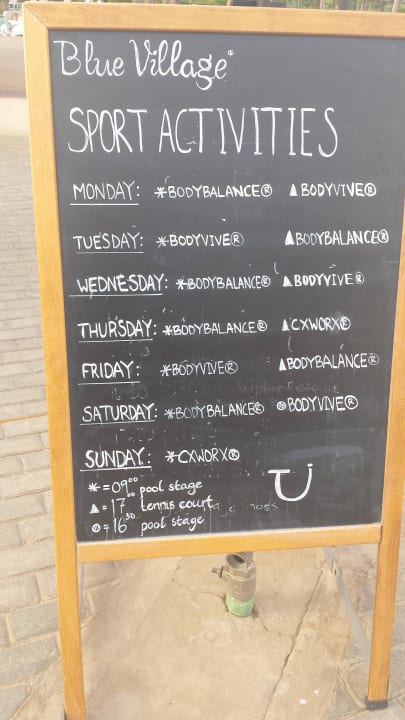 Blue Village®
SPORT ACTIVITIES
MONDAY: *BODYBALANCE® ▲BODYVIVE®
TUESDAY: *BODYVIVE® ▲BODYBALANCE®
WEDNESDAY: *BODYBALANCE® ▲BODYVIVE®
THURSDAY: *BODYBALANCE® ▲CXWORX®
FRIDAY: *BODYVIVE® ▲BODYBALANCE®
SATURDAY: *BODYBALANCE® ⊗BODYVIVE®
SUNDAY: *CXWORX®
* = 09⁰⁰ pool stage
▲ = 17⁰⁰ tennis court
⊗ = 16³⁰ pool stage